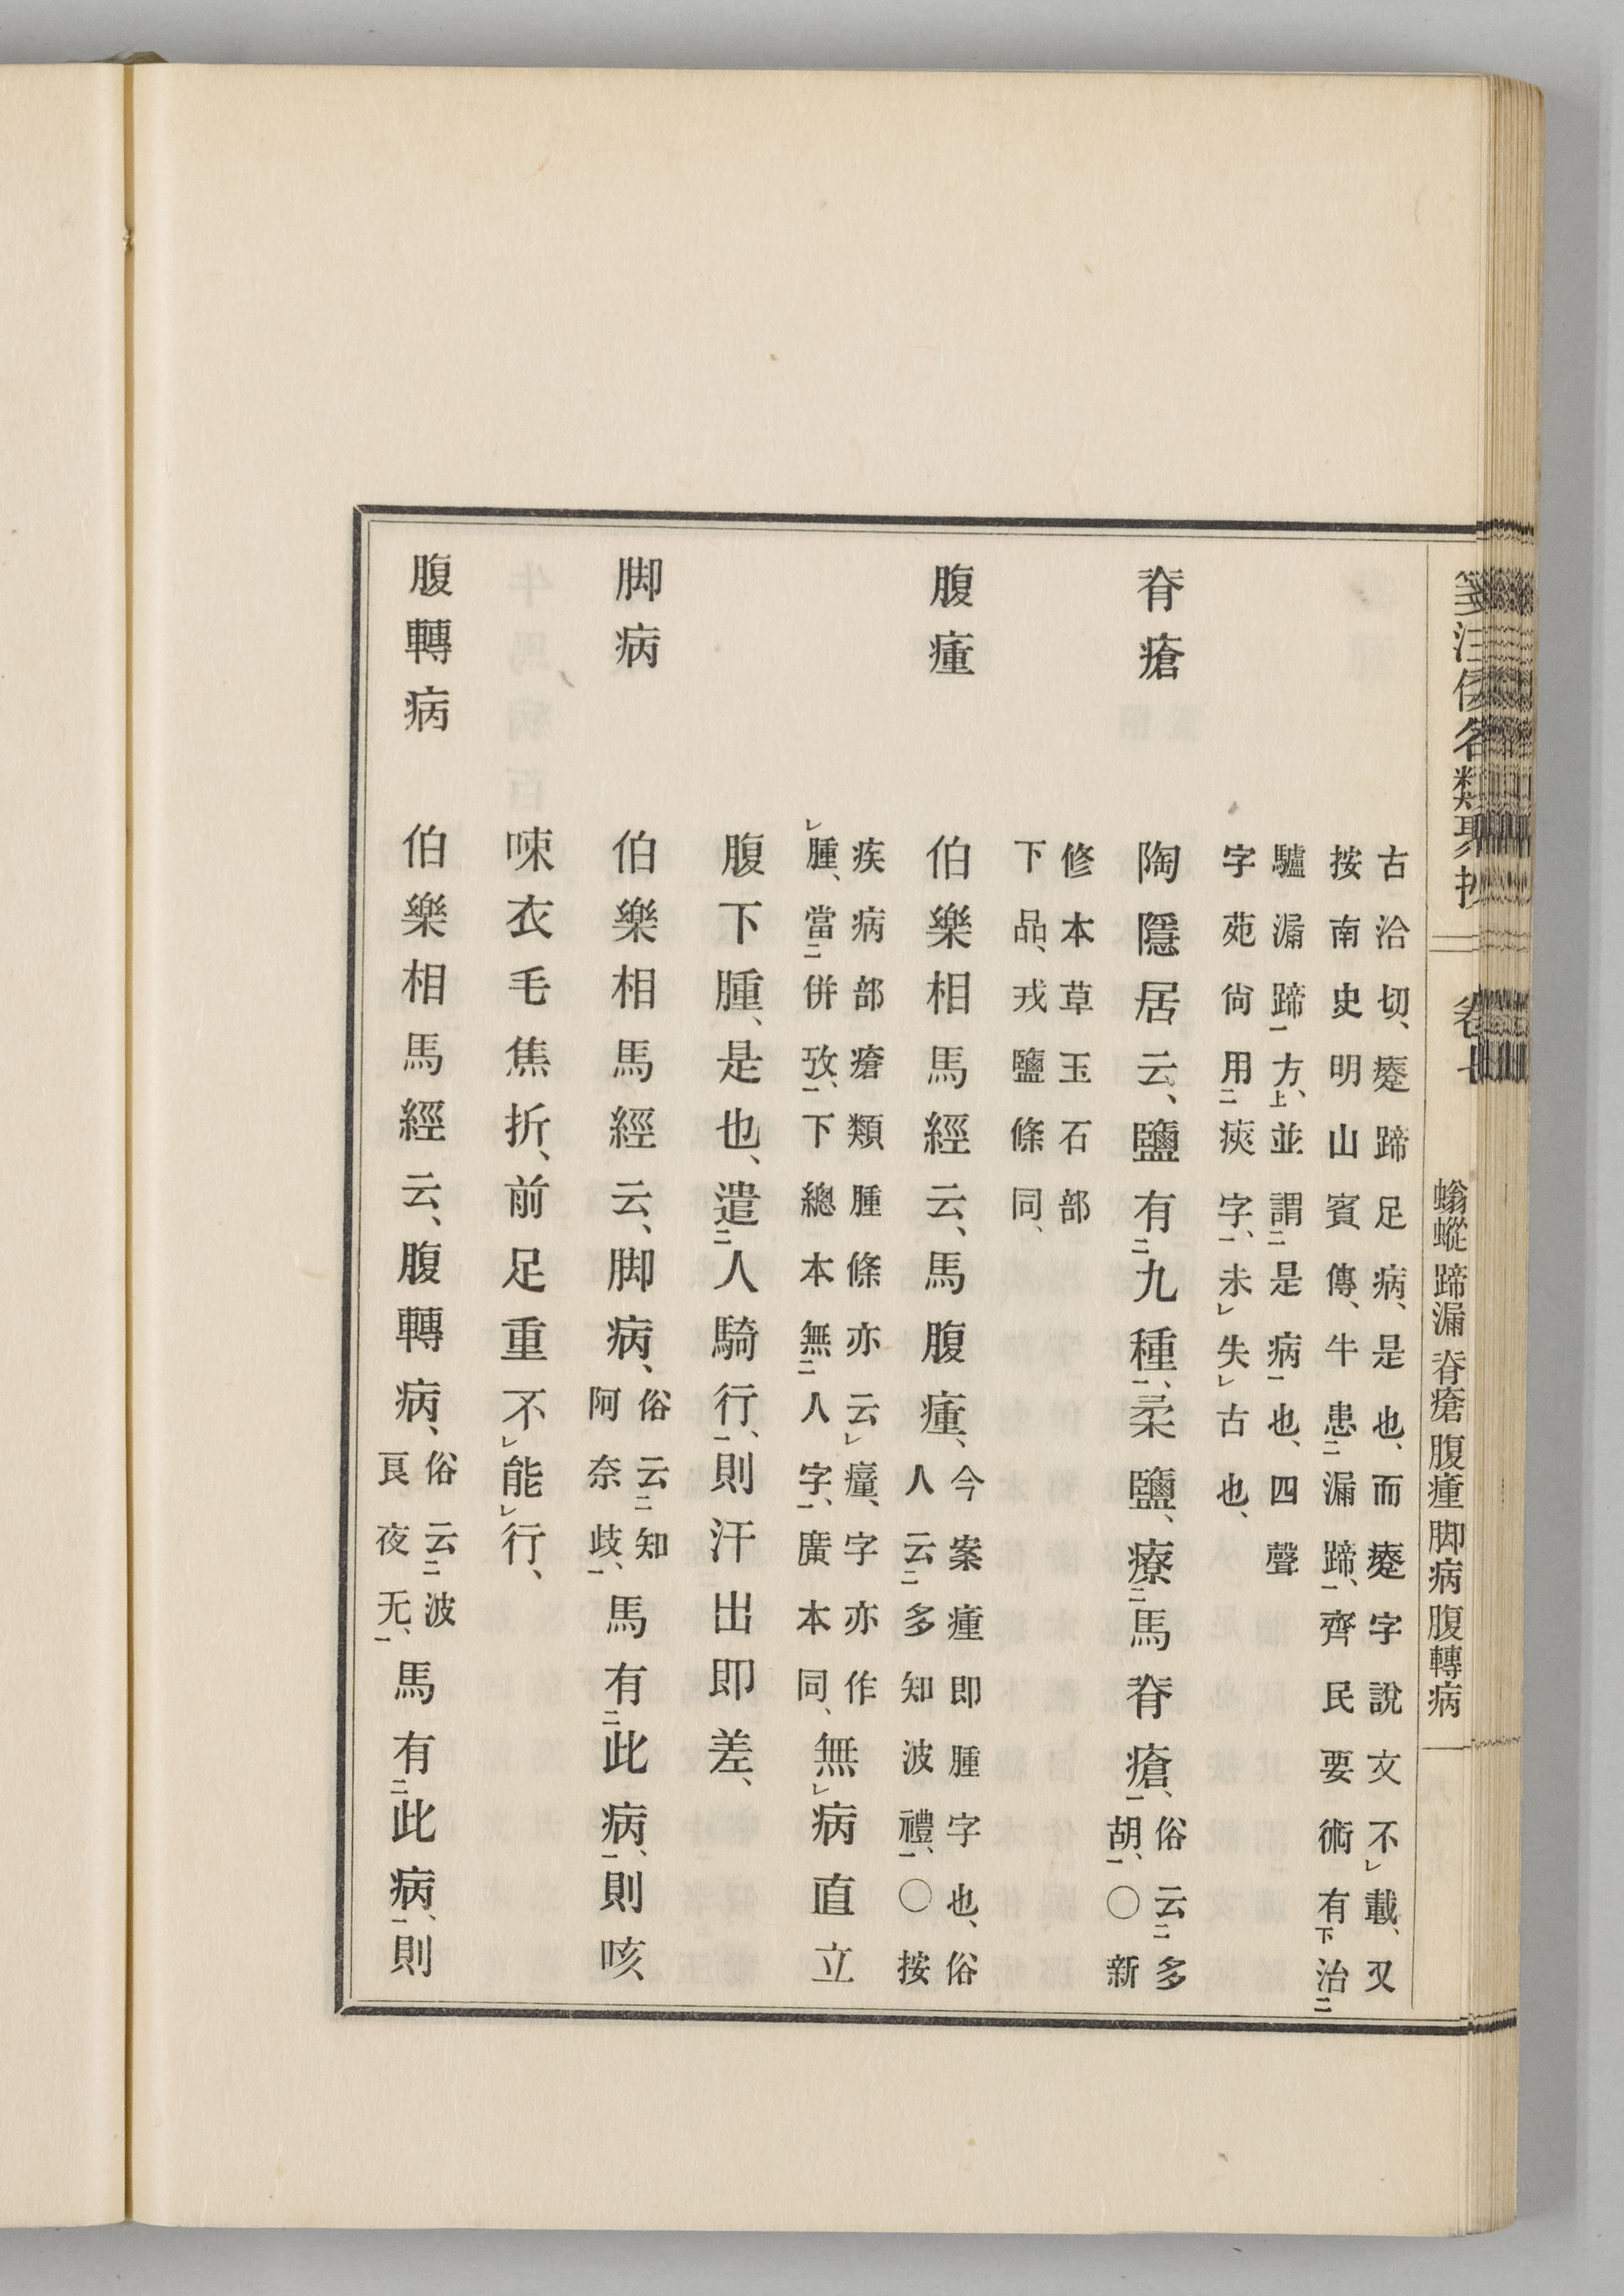 箋注倭名類聚抄 卷七 螉䗥 蹄漏 脊瘡 腹㾽 脚病 腹轉病
古洽切、瘞蹄足病、是也、而瘞字說文不㆑載、又
按南史明山賓傳、牛患㆓漏蹄㆒、齊民要術有㆘治㆓
驢漏蹄㆒方㆖、並謂㆓是病㆒也、四聲
字苑尙用㆓㾜字㆒、未㆑失㆑古也、
脊瘡 陶隱居云、鹽有㆓九種㆒、柔鹽、療㆓馬脊瘡㆒、俗云㆓多
胡㆒、〇新
修本草玉石部
下品、戎鹽條同、
腹㾽 伯樂相馬經云、馬腹㾽、今案㾽卽腫字也、俗
人云㆓多知波禮㆒、〇按
疾病部瘡類腫條亦云㆑癰、字亦作
㆑腫、當㆓併攷㆒、下總本無㆓人字㆒、廣本同、無㆑病直立
腹下腫、是也、遣㆓人騎行㆒、則汗出卽差、
脚病 伯樂相馬經云、脚病、俗云㆓知
阿奈歧㆒、馬有㆓此病㆒、則咳
㖨衣毛焦折、前足重不㆑能㆑行、
腹轉病 伯樂相馬經云、腹轉病、俗云㆓波
良夜无㆒、馬有㆓此病㆒、則